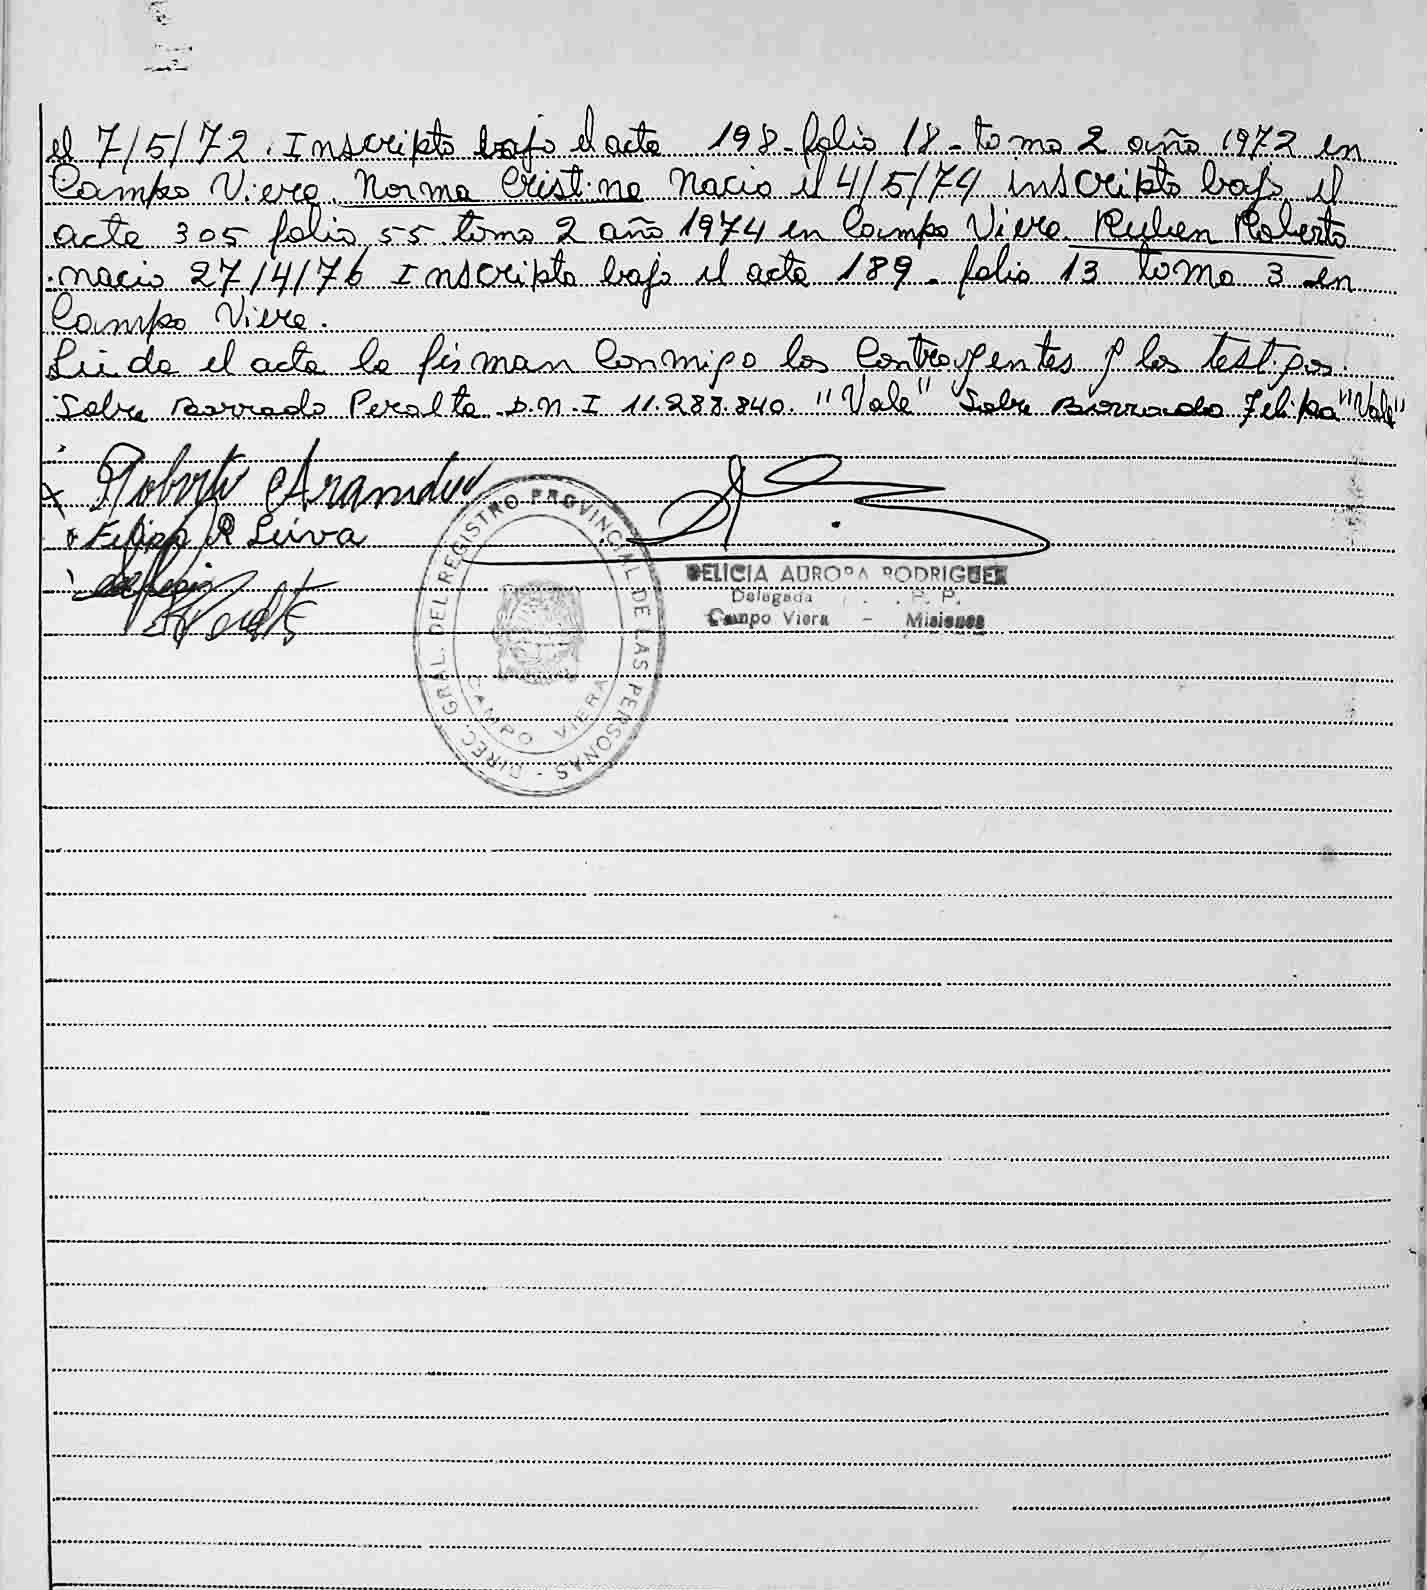 el 7/5/72. Inscripto bajo el acta 198-folio 18-tomo 2 año 1972 en
Campo Viera. Norma Cristina Nacio el 4/5/74 inscripta bajo el
acta 305 folio 55 tomo 2 año 1974 en Campo Viera. Ruben Roberto
nacio 27/4/76 Inscripto bajo el acta 189-folio 13 tomo 3 en
Campo Viera.
Leida el acta la firman conmigo los contrayentes y los testigos.
Sobre Borrado Peralta D.N.I 11.288.840. "Vale" Sobre Borrado Felipa "Vale"
Roberto
Felipa R Leiva
Peralta
DIREC. GRAL. DEL REGISTRO PROVINCIAL DE LAS PERSONAS -
CAMPO VIERA
DELICIA AURORA RODRIGUEZ
Delegada R. P. P.
Campo Viera - Misiones